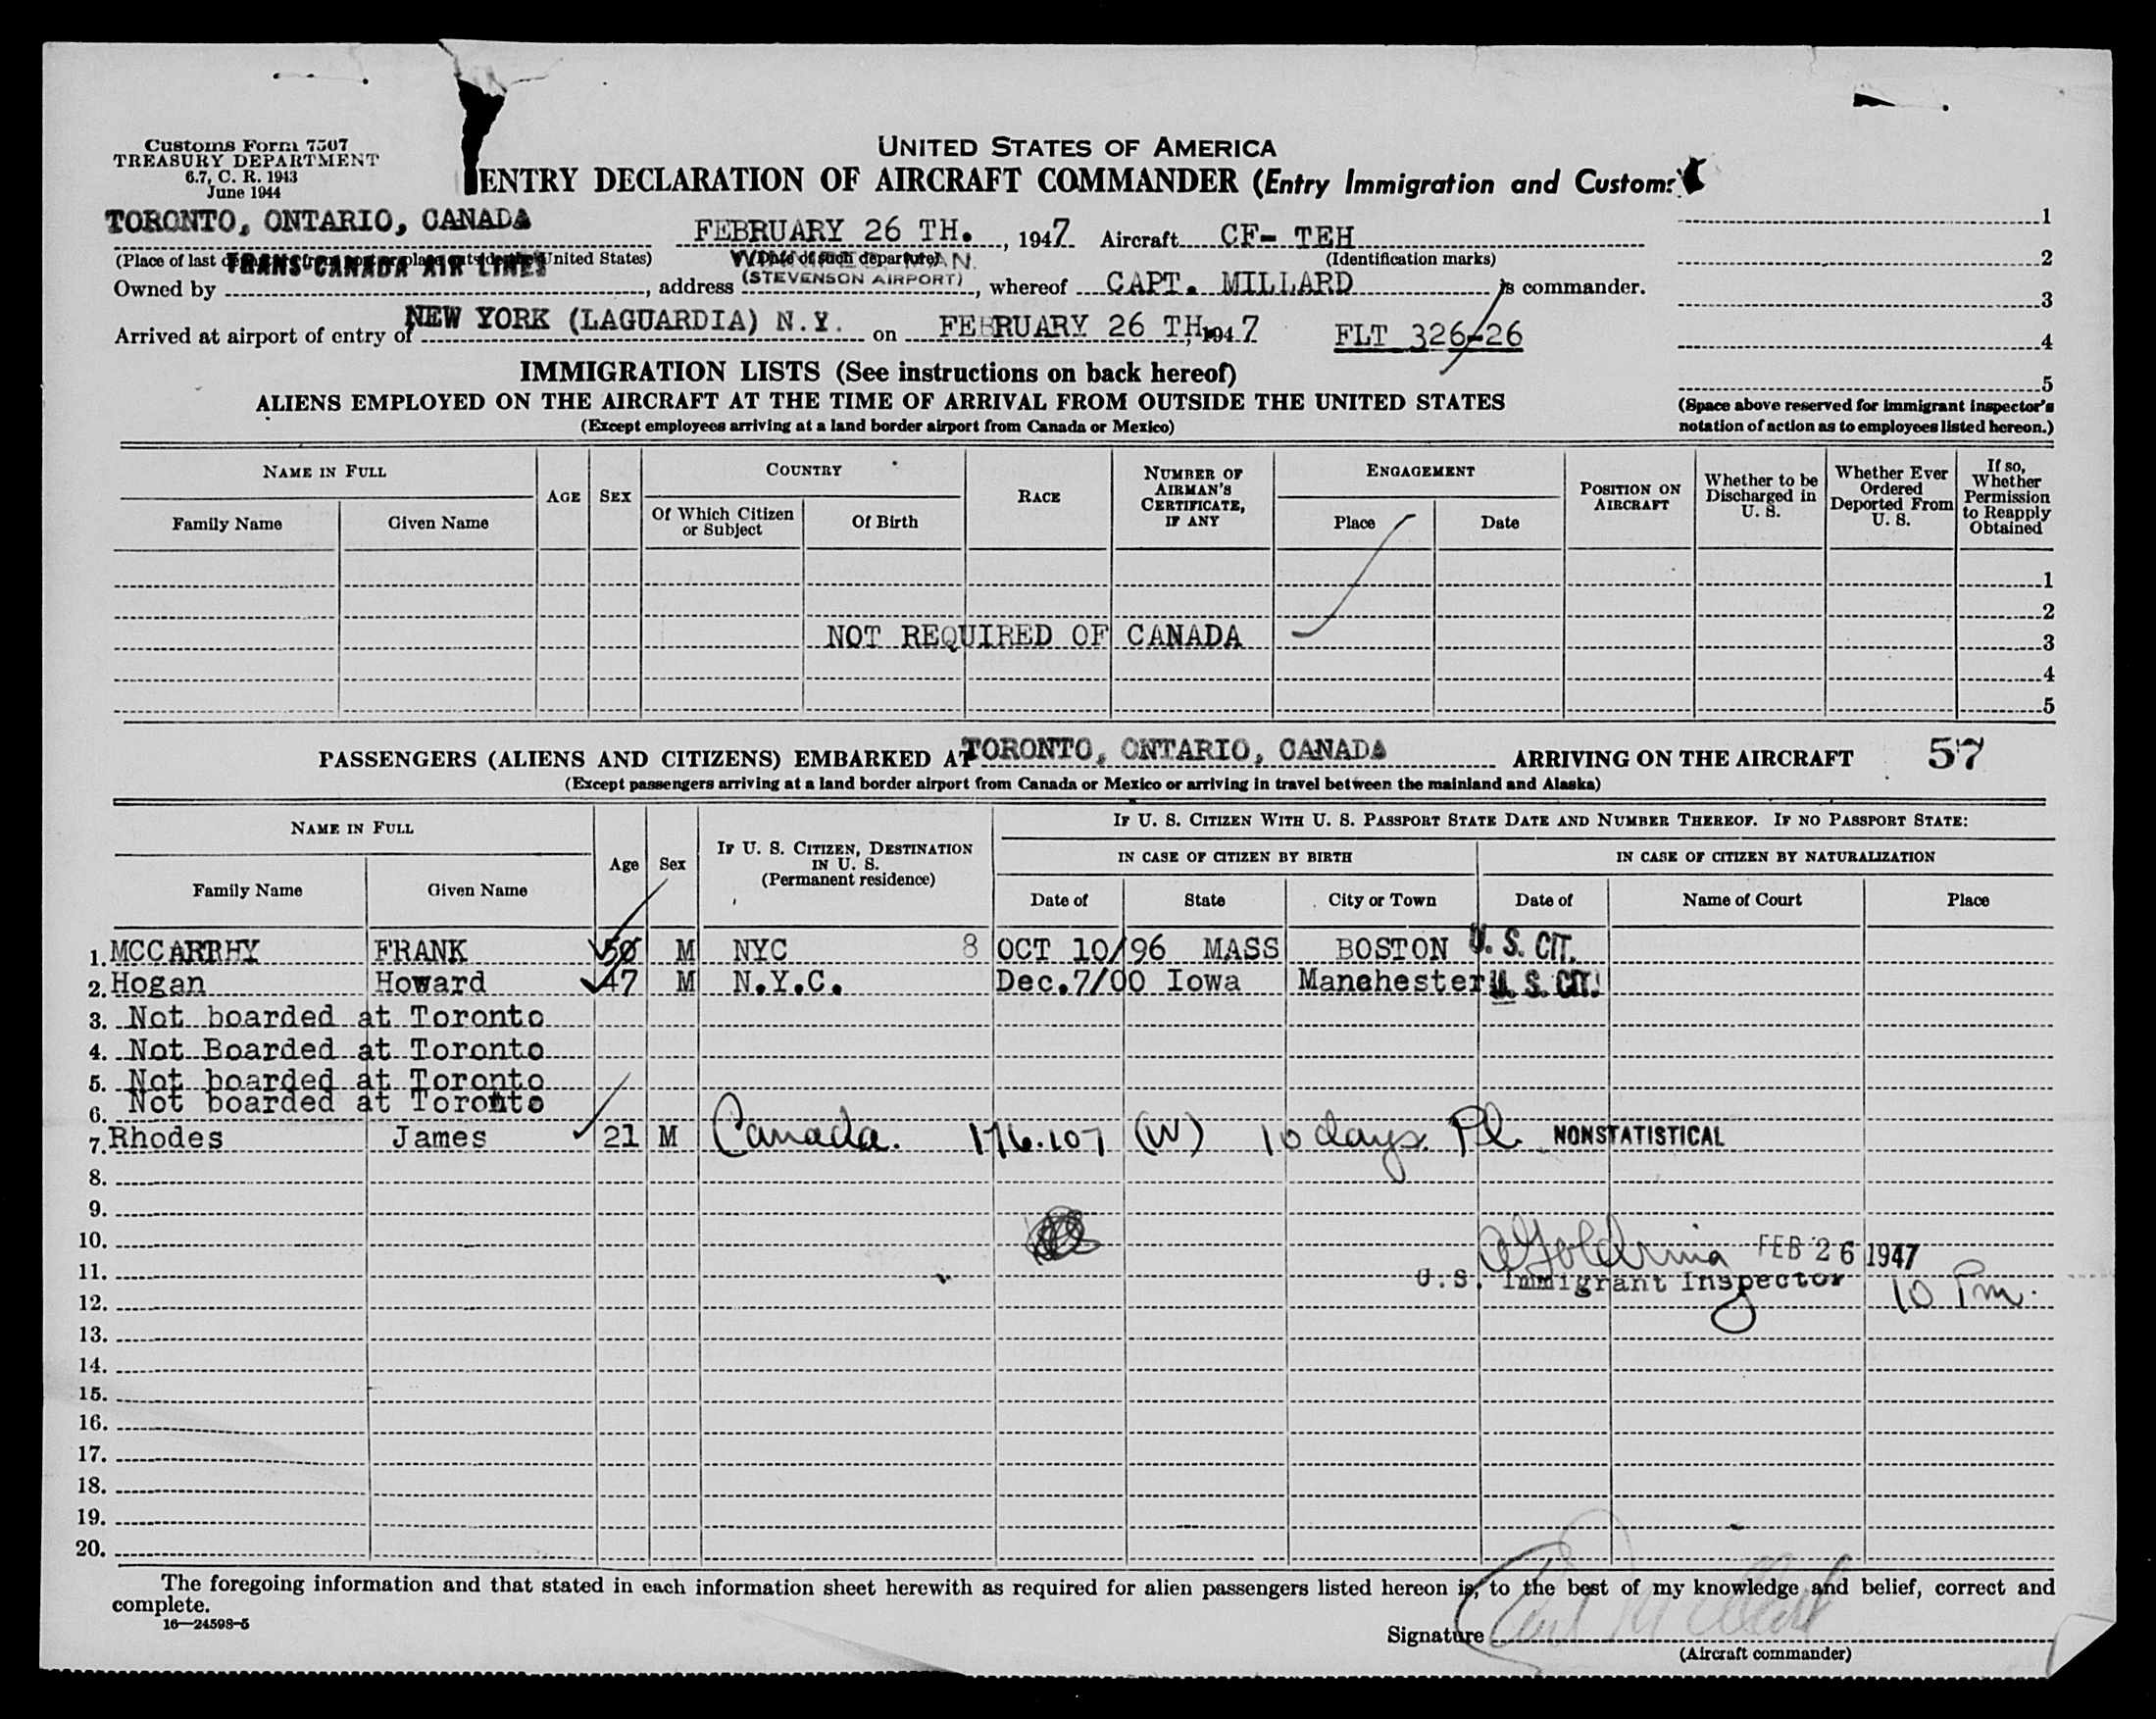 Customs Form 7507
TREASURY DEPARTMENT
6.7, C. R. 1943
June 1944
UNITED STATES OF AMERICA
ENTRY DECLARATION OF AIRCRAFT COMMANDER (Entry Immigration and Customs
TORONTO, ONTARIO, CANADA FEBRUARY 26 TH. , 1947 Aircraft CF- TEH
(Place of last departure from port or place outside the United States) (Date of such departure) (Identification marks)
Owned by TRANS-CANADA AIR LINES , address (STEVENSON AIRPORT) , whereof CAPT. MILLARD is commander.
Arrived at airport of entry of NEW YORK (LAGUARDIA) N.Y. on FEBRUARY 26 TH, 1947 FLT 326-26
1
2
3
4
5
(Space above reserved for immigrant inspector's
notation of action as to employees listed hereon.)
IMMIGRATION LISTS (See instructions on back hereof)
ALIENS EMPLOYED ON THE AIRCRAFT AT THE TIME OF ARRIVAL FROM OUTSIDE THE UNITED STATES
(Except employees arriving at a land border airport from Canada or Mexico)
NAME IN FULL
Family Name Given Name
AGE
SEX
COUNTRY
Of Which Citizen
or Subject
Of Birth
RACE
NUMBER OF
AIRMAN'S
CERTIFICATE,
IF ANY
ENGAGEMENT
Place Date
POSITION ON
AIRCRAFT
Whether to be
Discharged in
U. S.
Whether Ever
Ordered
Deported From
U. S.
If so,
Whether
Permission
to Reapply
Obtained
1
2
NOT REQUIRED OF CANADA 3
4
5
PASSENGERS (ALIENS AND CITIZENS) EMBARKED AT TORONTO, ONTARIO, CANADA ARRIVING ON THE AIRCRAFT 57
(Except passengers arriving at a land border airport from Canada or Mexico or arriving in travel between the mainland and Alaska)
NAME IN FULL
Family Name Given Name
Age
Sex
IF U. S. CITIZEN, DESTINATION
IN U. S.
(Permanent residence)
IF U. S. CITIZEN WITH U. S. PASSPORT STATE DATE AND NUMBER THEREOF. IF NO PASSPORT STATE:
IN CASE OF CITIZEN BY BIRTH IN CASE OF CITIZEN BY NATURALIZATION
Date of State City or Town Date of Name of Court Place
1. MCCARTHY FRANK 50 M NYC 8 OCT 10/96 MASS BOSTON U. S. CIT.
2. Hogan Howard 47 M N.Y.C. Dec.7/00 Iowa Manchester U. S. CIT.
3. Not boarded at Toronto
4. Not Boarded at Toronto
5. Not boarded at Toronto
6. Not boarded at Toronto
7. Rhodes James 21 M Canada. 176.107 (W) 10 days. Pl. NONSTATISTICAL
8.
9.
10. FEB 26 1947
11. U.S. Immigrant Inspector
12. 10 Pm.
13.
14.
15.
16.
17.
18.
19.
20.
The foregoing information and that stated in each information sheet herewith as required for alien passengers listed hereon is, to the best of my knowledge and belief, correct and
complete.
16—24598-5
Signature
(Aircraft commander)